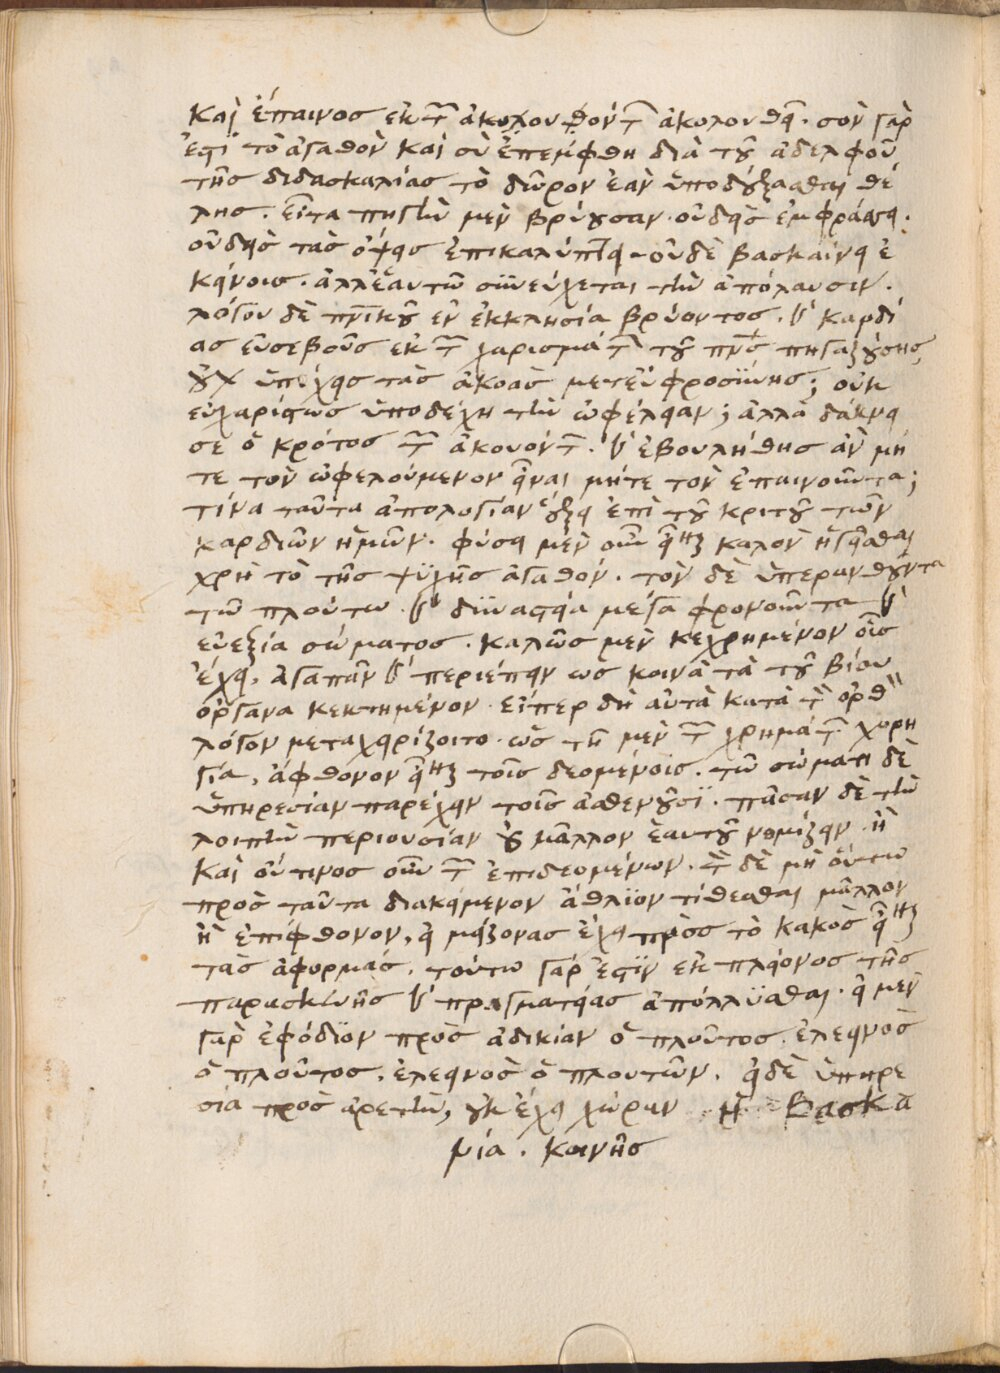 καὶ ἔπαινος ἐκ τῶν ἀκολουθούντων ἀκολουθεῖ. σὸν γάρ
ἐστι τὸ ἀγαθὸν καὶ σὺ ἐπέμφθη διὰ τοῦ ἀδελφοῦ
τῆς διδασκαλίας τὸ δῶρον ἐὰν ὑποδέξασθαι θέ
λης. εἶτα πηγὴν μὲν βρύουσαν οὐδεὶς ἐμφράσσει.
οὐδεὶς τὰς ὄψεις ἐπικαλύπτει. οὐδὲ βασκαίνει ἐ
κείνοις. ἀλλ' ἑαυτῶ συνεύχεται τὴν ἀπόλαυσιν.
λόγου δὲ πνευματικοῦ ἐν ἐκκλησία βρύοντος. καὶ καρδί
ας εὐσεβοῦς ἐκ τῶν χαρισμάτων τοῦ πνεύματος πηγαζούσης
οὐχ ὑπέχεις τὰς ἀκοὰς μετ' εὐφροσύνης; οὐκ
εὐχαρίστως ὑποδέχη τὴν ὠφέλειαν; ἀλλὰ δάκνει
σε ὁ κρότος τῶν ἀκουόντων. καὶ ἐβουλήθης ἂν μή
τε τὸν ὠφελούμενον εἶναι μήτε τὸν ἐπαινοῦντα;
τίνα ταῦτα ἀπολογίαν ἕξει ἐπὶ τοῦ κριτοῦ τῶν
καρδιῶν ἡμῶν. φύσει μὲν οὖν εἶναι καλὸν ἡγεῖσθαι
χρὴ τὸ τῆς ψυχῆς ἀγαθόν. τὸν δὲ ὑπερανθοῦντα
τῶ πλούτω. καὶ δυναστεία μέγα φρονοῦντα καὶ
εὐεξία σώματος. καλῶς μὲν κεχρημένον οἷς
ἔχει. ἀγαπᾶν καὶ περιέπειν ὡς κοινὰ τὰ τοῦ βίου
ὄργανα κεκτημένον. εἴπερ δὴ αὐτὰ κατὰ τὸν ὀρθὸν
λόγον μεταχειρίζοιτο. ὡς τῆ μὲν τῶν χρημάτων χορη
γία, ἄφθονον εἶναι τοῖς δεομένοις. τῶ σώματι δὲ
ὑπηρεσίαν παρέχειν τοῖς ἀσθενοῦσι. πᾶσαν δὲ τὴν
λοιπὴν περιουσίαν οὐ μᾶλλον ἑαυτοῦ νομίζειν. ἢ
καὶ οὗτινος οὖν τῶν ἐπιδεομένων. τὸν δὲ μὴ οὕτω
πρὸς ταῦτα διακείμενον ἄθλιον τίθεσθαι μᾶλλον
ἢ ἐπίφθονον, εἰ μείζονας ἔχει πρὸς τὸ κακὸς εἶναι
τὰς ἀφορμάς. τούτω γάρ ἐστιν ἐκ πλείονος τῆς
παρασκευῆς καὶ πραγματείας ἀπόλλυσθαι. εἰ μὲν
γὰρ ἐφόδιον πρὸς ἀδικίαν ὁ πλοῦτος. ἐλεεινὸς
ὁ πλοῦτος. ἐλεεινὸς ὁ πλουτῶν. εἰ δὲ ὑπηρε
σία πρὸς ἀρετὴν, οὐκ ἔχει χώραν ἡ βασκα
μία. κοινῆς